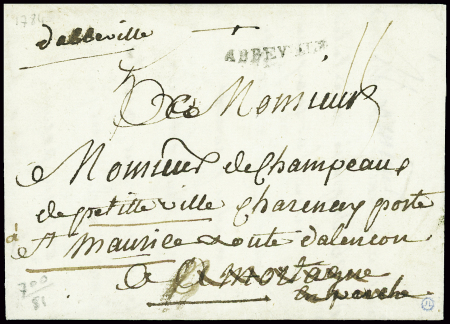 1784
d'abbeville
ABBEVILLE
Monsieur
Monsieur de Champeaux
de petitteville Charencey poste
à St maurice route dalencon
a mortagne
au perche
700
81